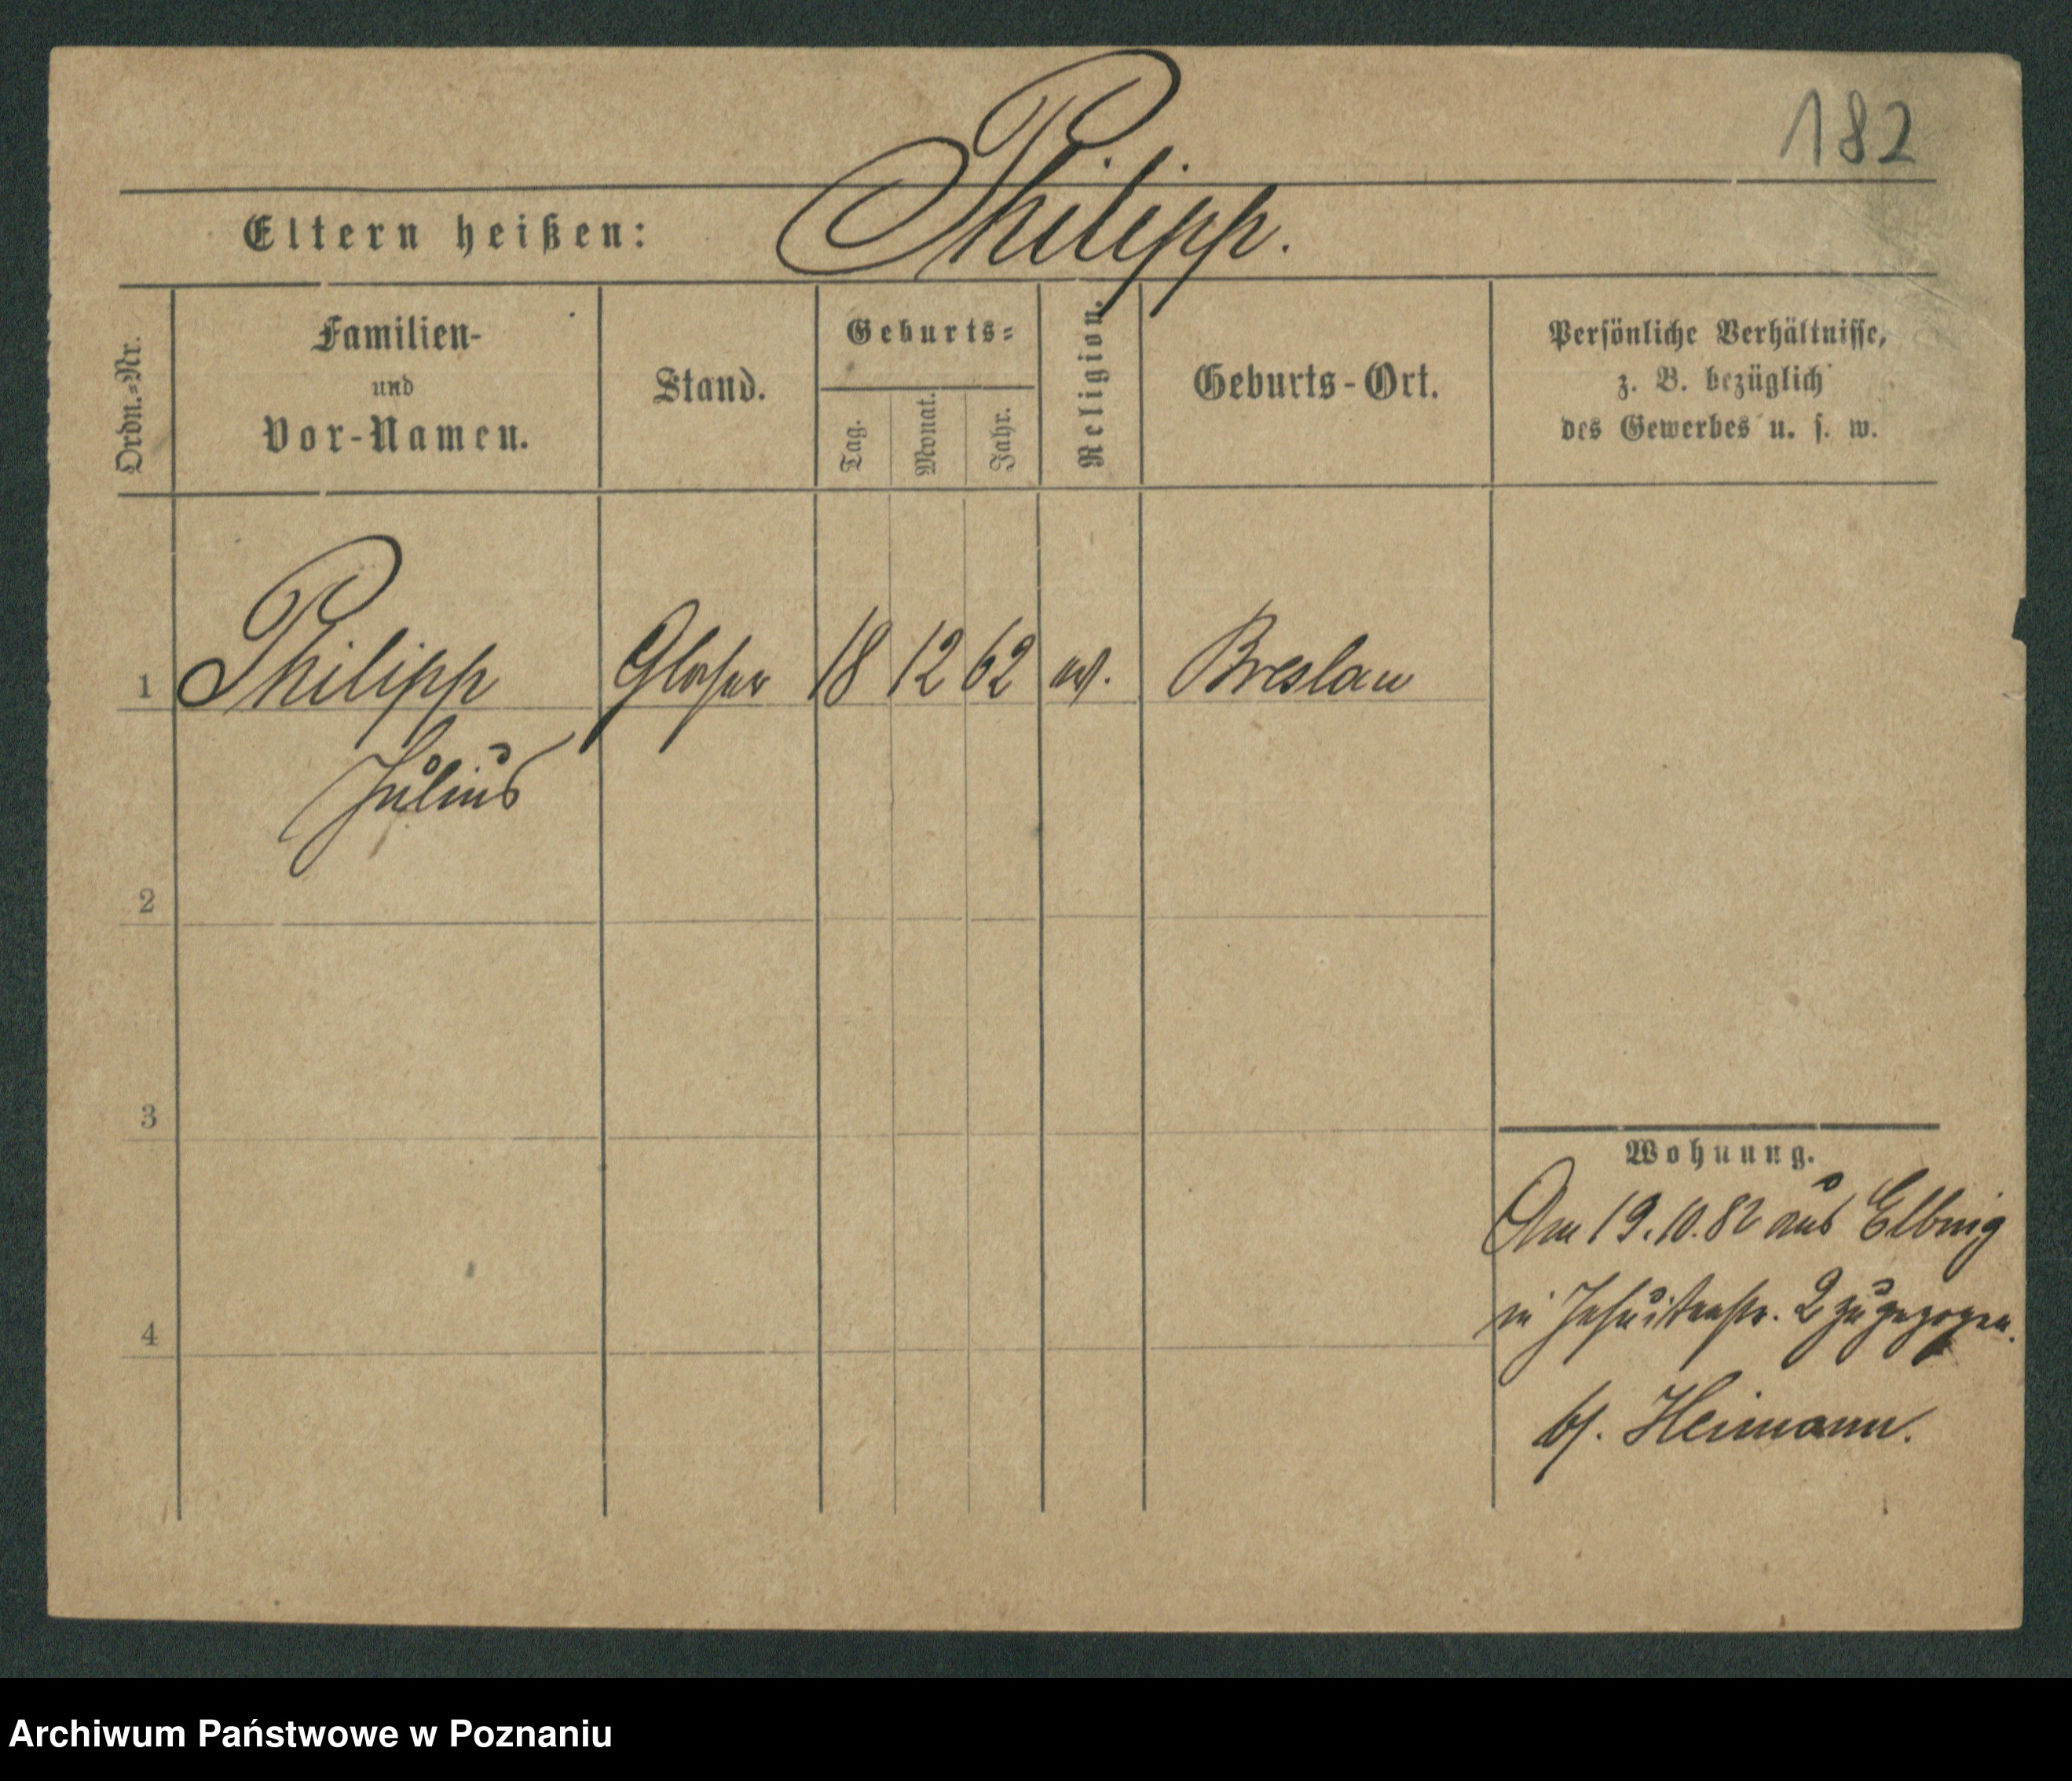 182
Eltern heißen: Philipp.
Ordn.=Nr.
Familien-
und
Vor-Namen.
Stand.
Geburts=
Tag.
Monat.
Jahr.
Religion.
Geburts-Ort.
Persönliche Verhältnisse,
z. B. bezüglich
des Gewerbes u. s. w.
1 Philipp Glaser 18 12 62 Breslau
Julius
2
3
4
Wohnung.
Am 19.10.82 aus Elbing
in Jesuitenstr. 2 zugezogen.
b/. Heimann.
Archiwum Państwowe w Poznaniu